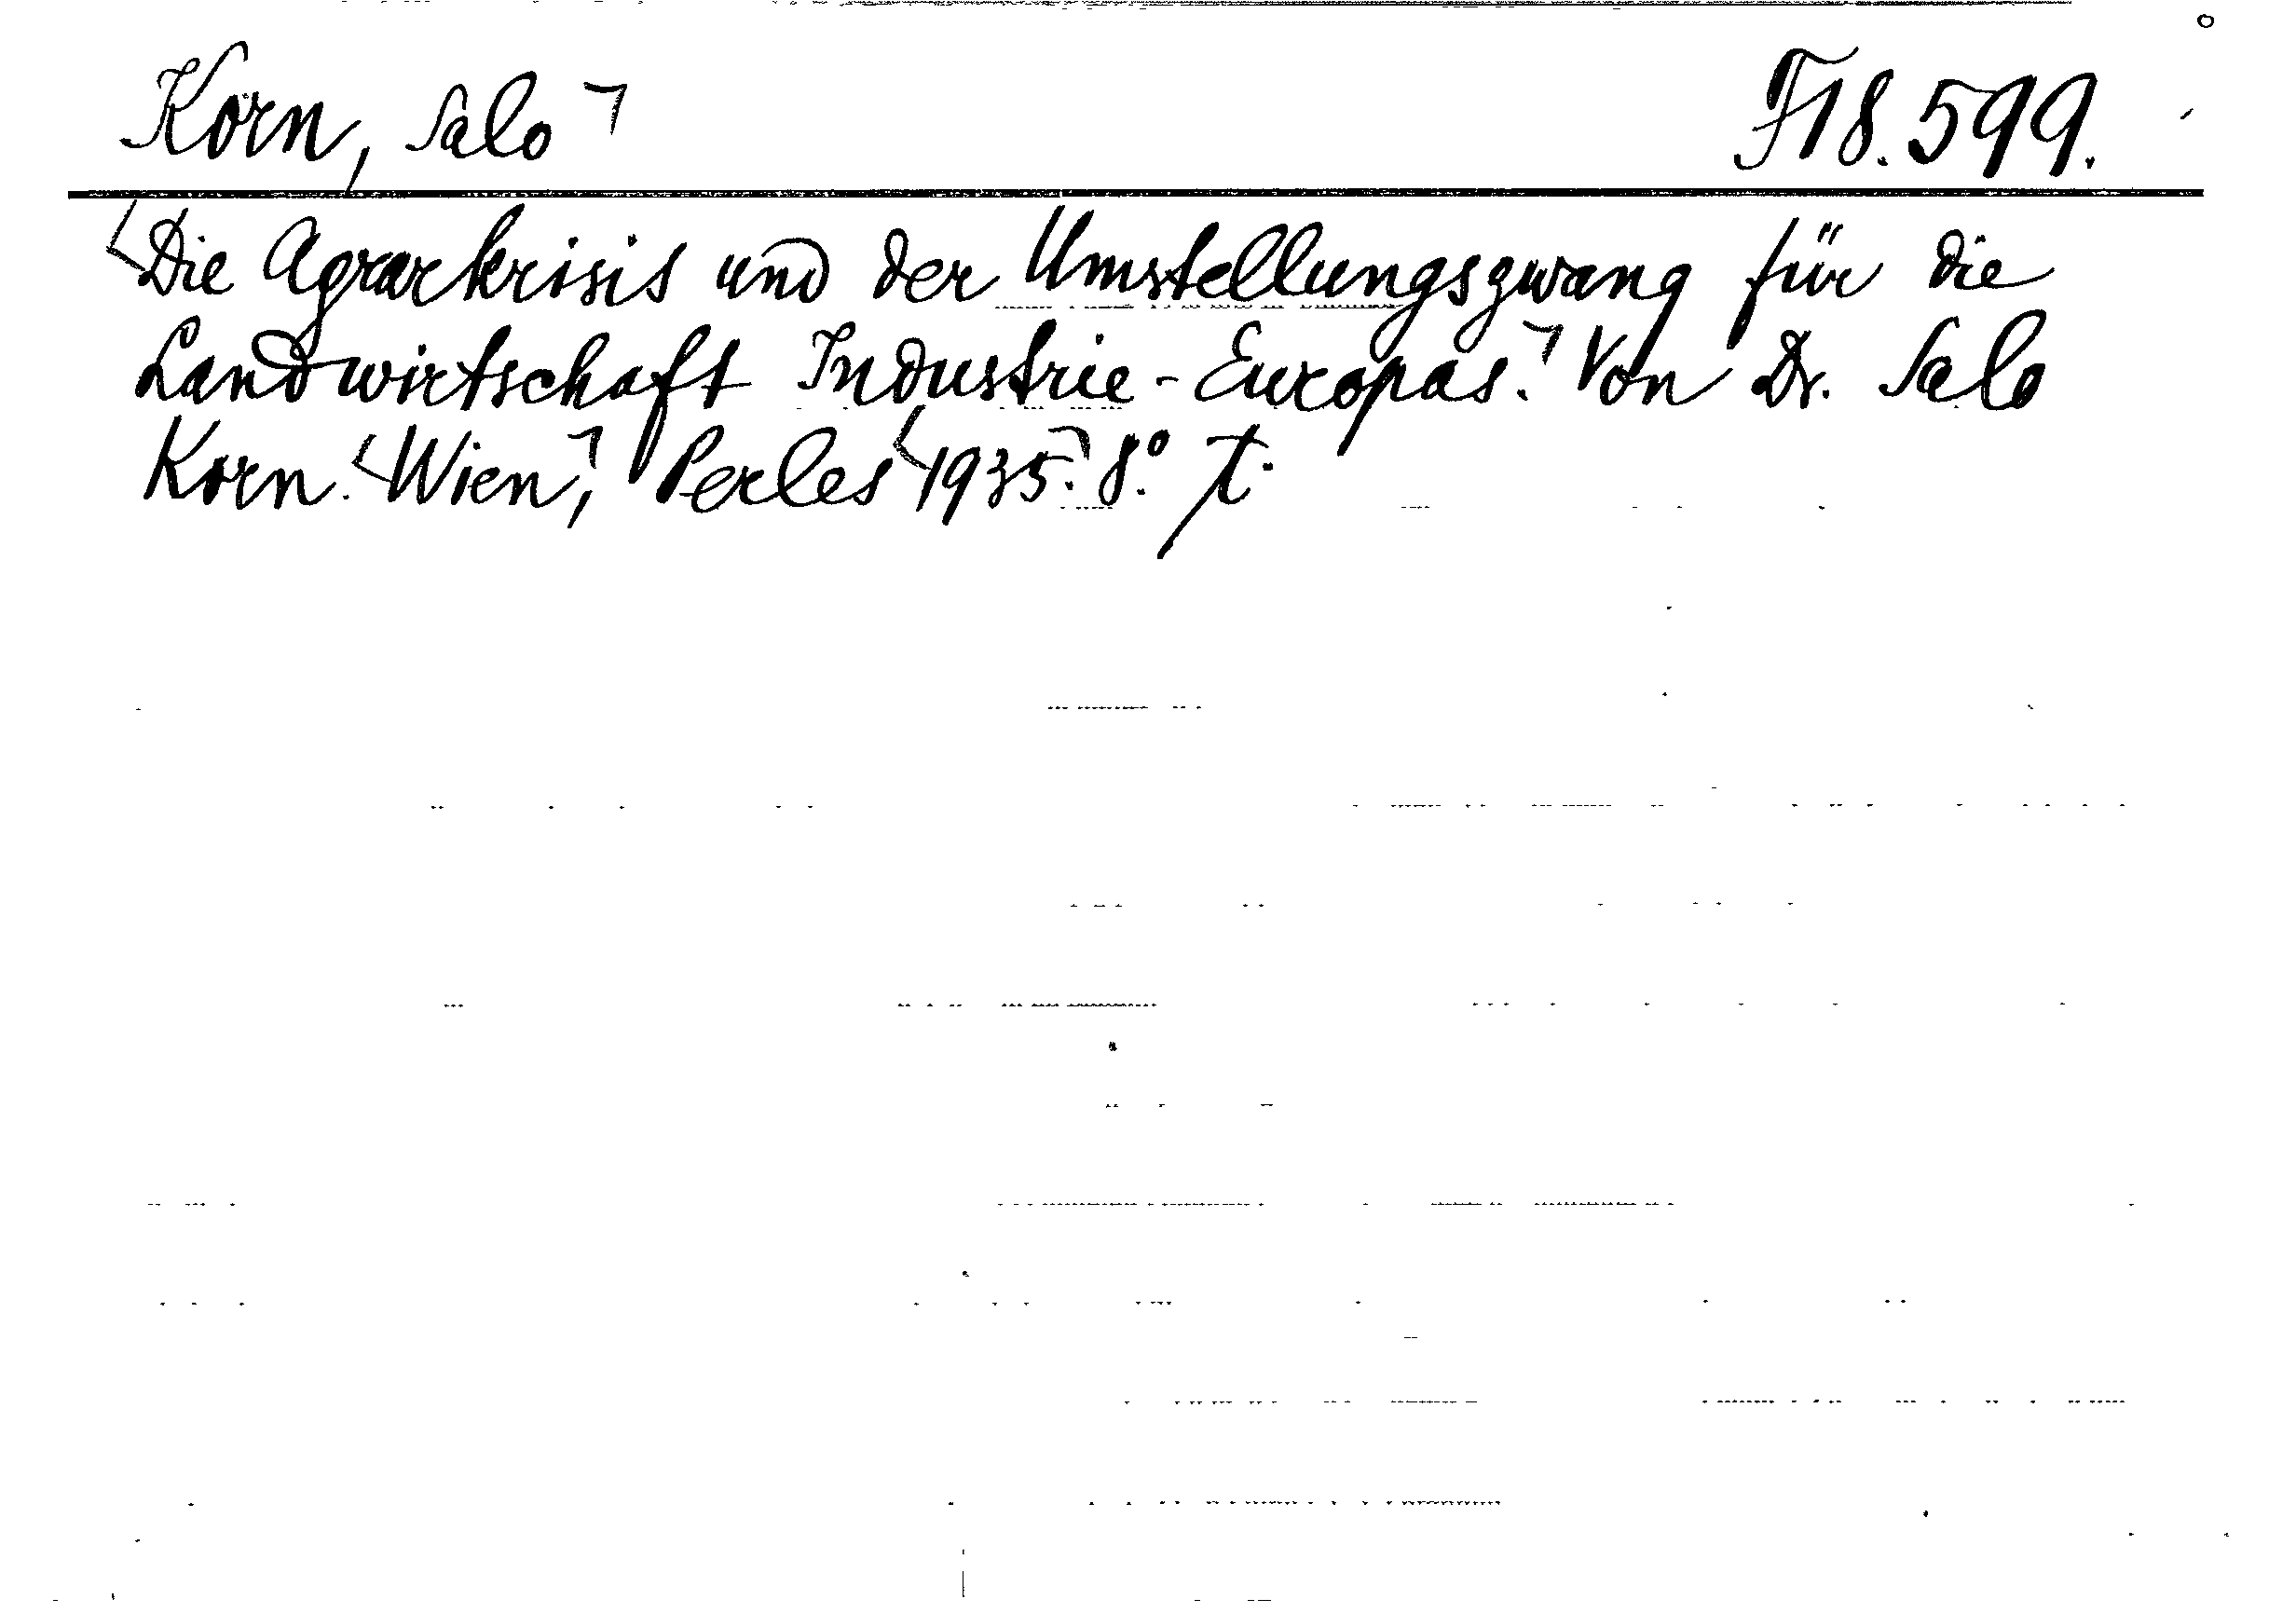 Korn, Salo ⌝ F18.599.
<Die Agrarkrisis und der Umstellungszwang für die
Landwirtschaft Industrie-Europas.⌝ Von Dr. Salo
Korn. <Wien,⌝ Perles <1935.⌝ 8.° T.